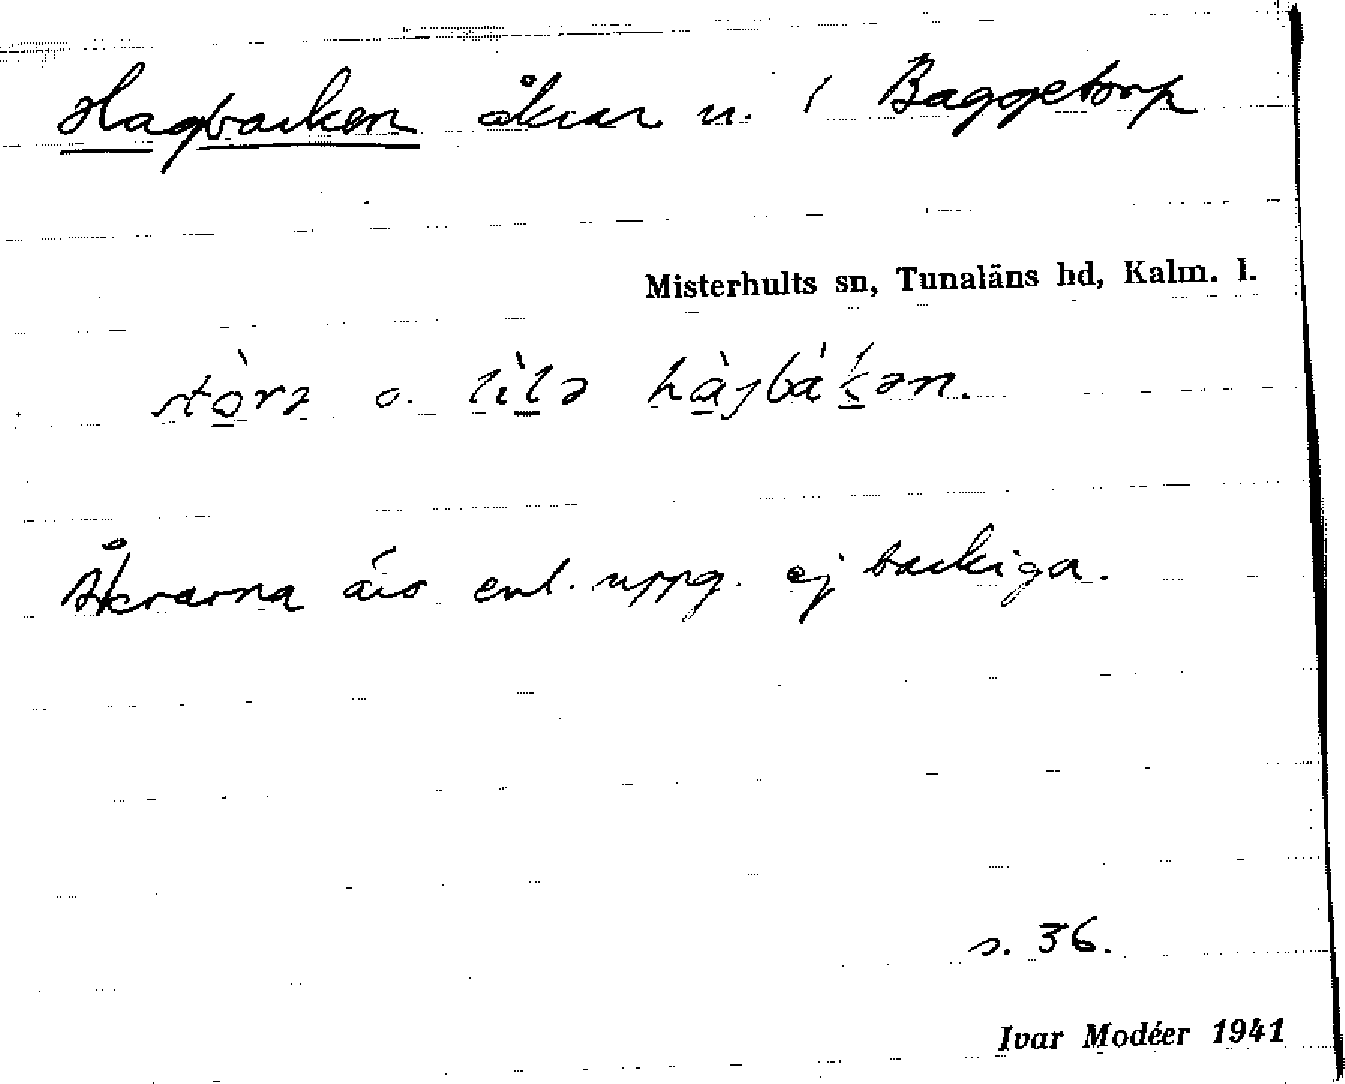 Hagbacken åkrar n. i Baggetorp
Misterhults sn, Tunaläns hd, Kalm. l.
stòrə o. lìlə hàjbákən.
Åkrarna äro enl. uppg. ej backiga.
s. 36.
Ivar Modéer 1941